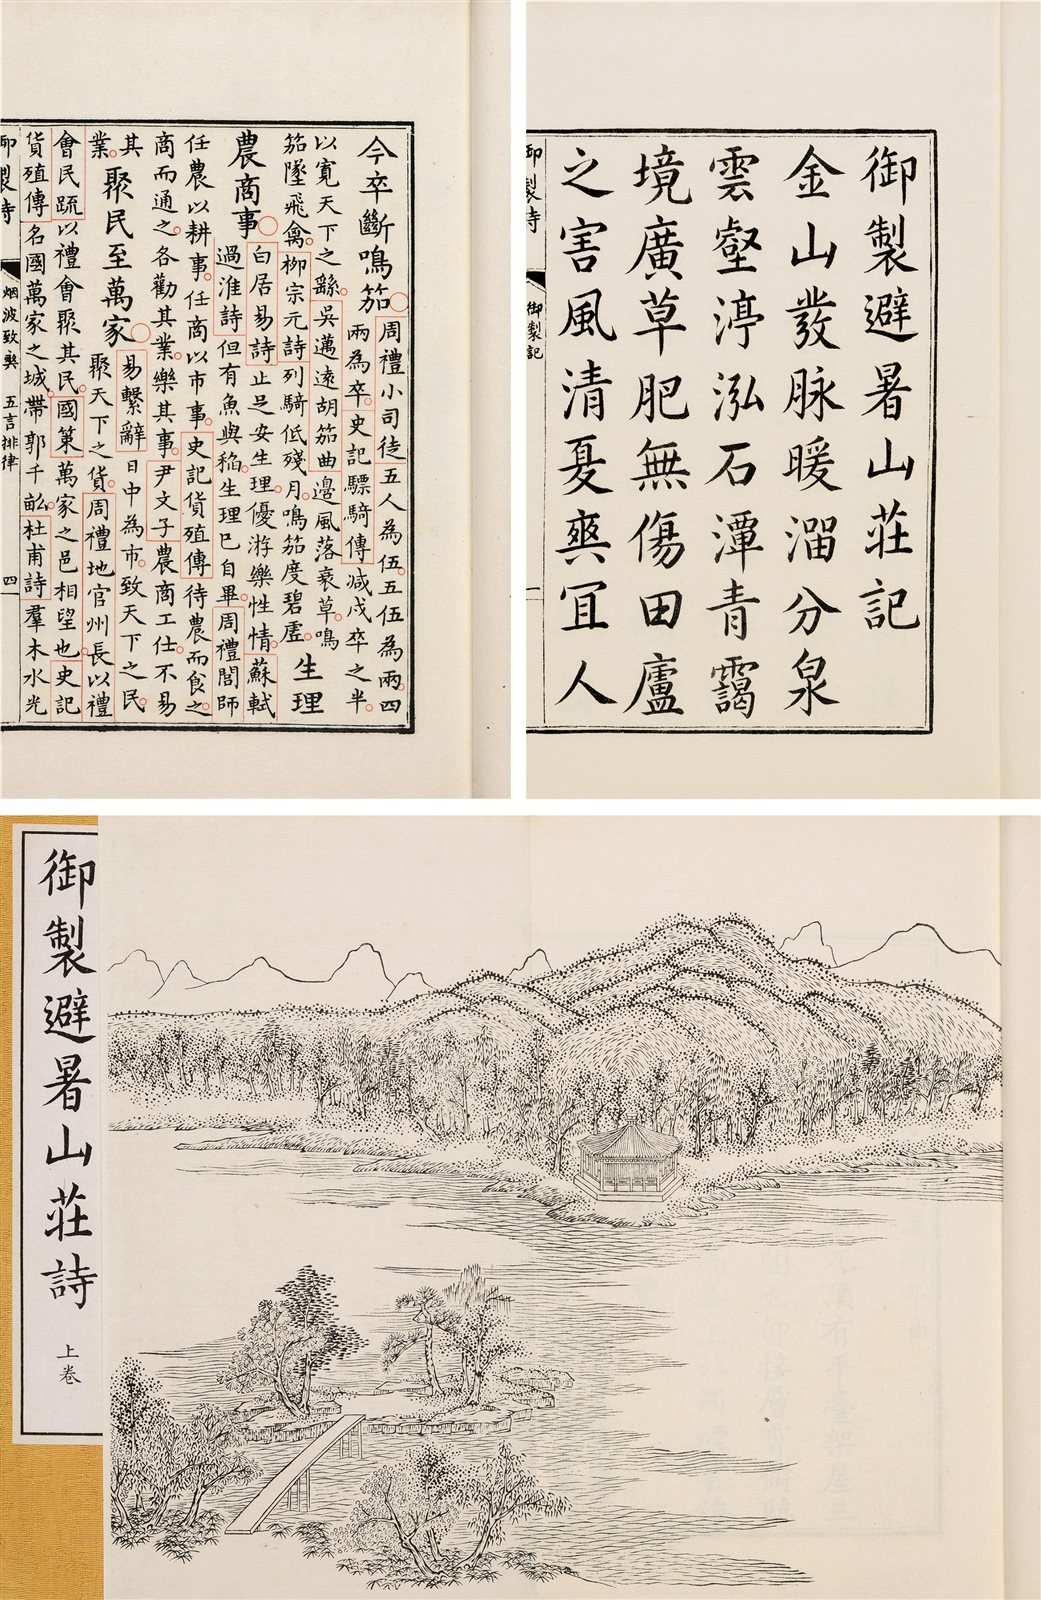 今卒斷鳴笳
周禮小司徒五人為伍五伍為兩四
兩為卒史記驃騎傳減戍卒之半
以寬天下之繇吳邁遠胡笳曲邊風落衰草鳴
笳墜飛禽柳宗元詩列騎低殘月鳴笳度碧虛
生理
農商事
白居易詩止足安生理優游樂性情蘇軾
過淮詩但有魚與稻生理已自畢周禮閭師
任農以耕事任商以市事史記貨殖傳待農而食之
商而通之各勸其業樂其事尹文子農商工仕不易
其
業
聚民至萬家
易繫辭日中為市致天下之民
聚天下之貨周禮地官州長以禮
會民䟽以禮會聚其民國策萬家之邑相望也史記
貨殖傳名國萬家之城帶郭千畝杜甫詩羣木水光
御製詩
烟波致爽
五言排律
四
御製避暑山莊記
金山發脉暖溜分泉
雲壑渟泓石潭青靄
境廣草肥無傷田廬
之害風清夏爽宜人
御製詩
御製記
一
御製避暑山莊詩
上卷